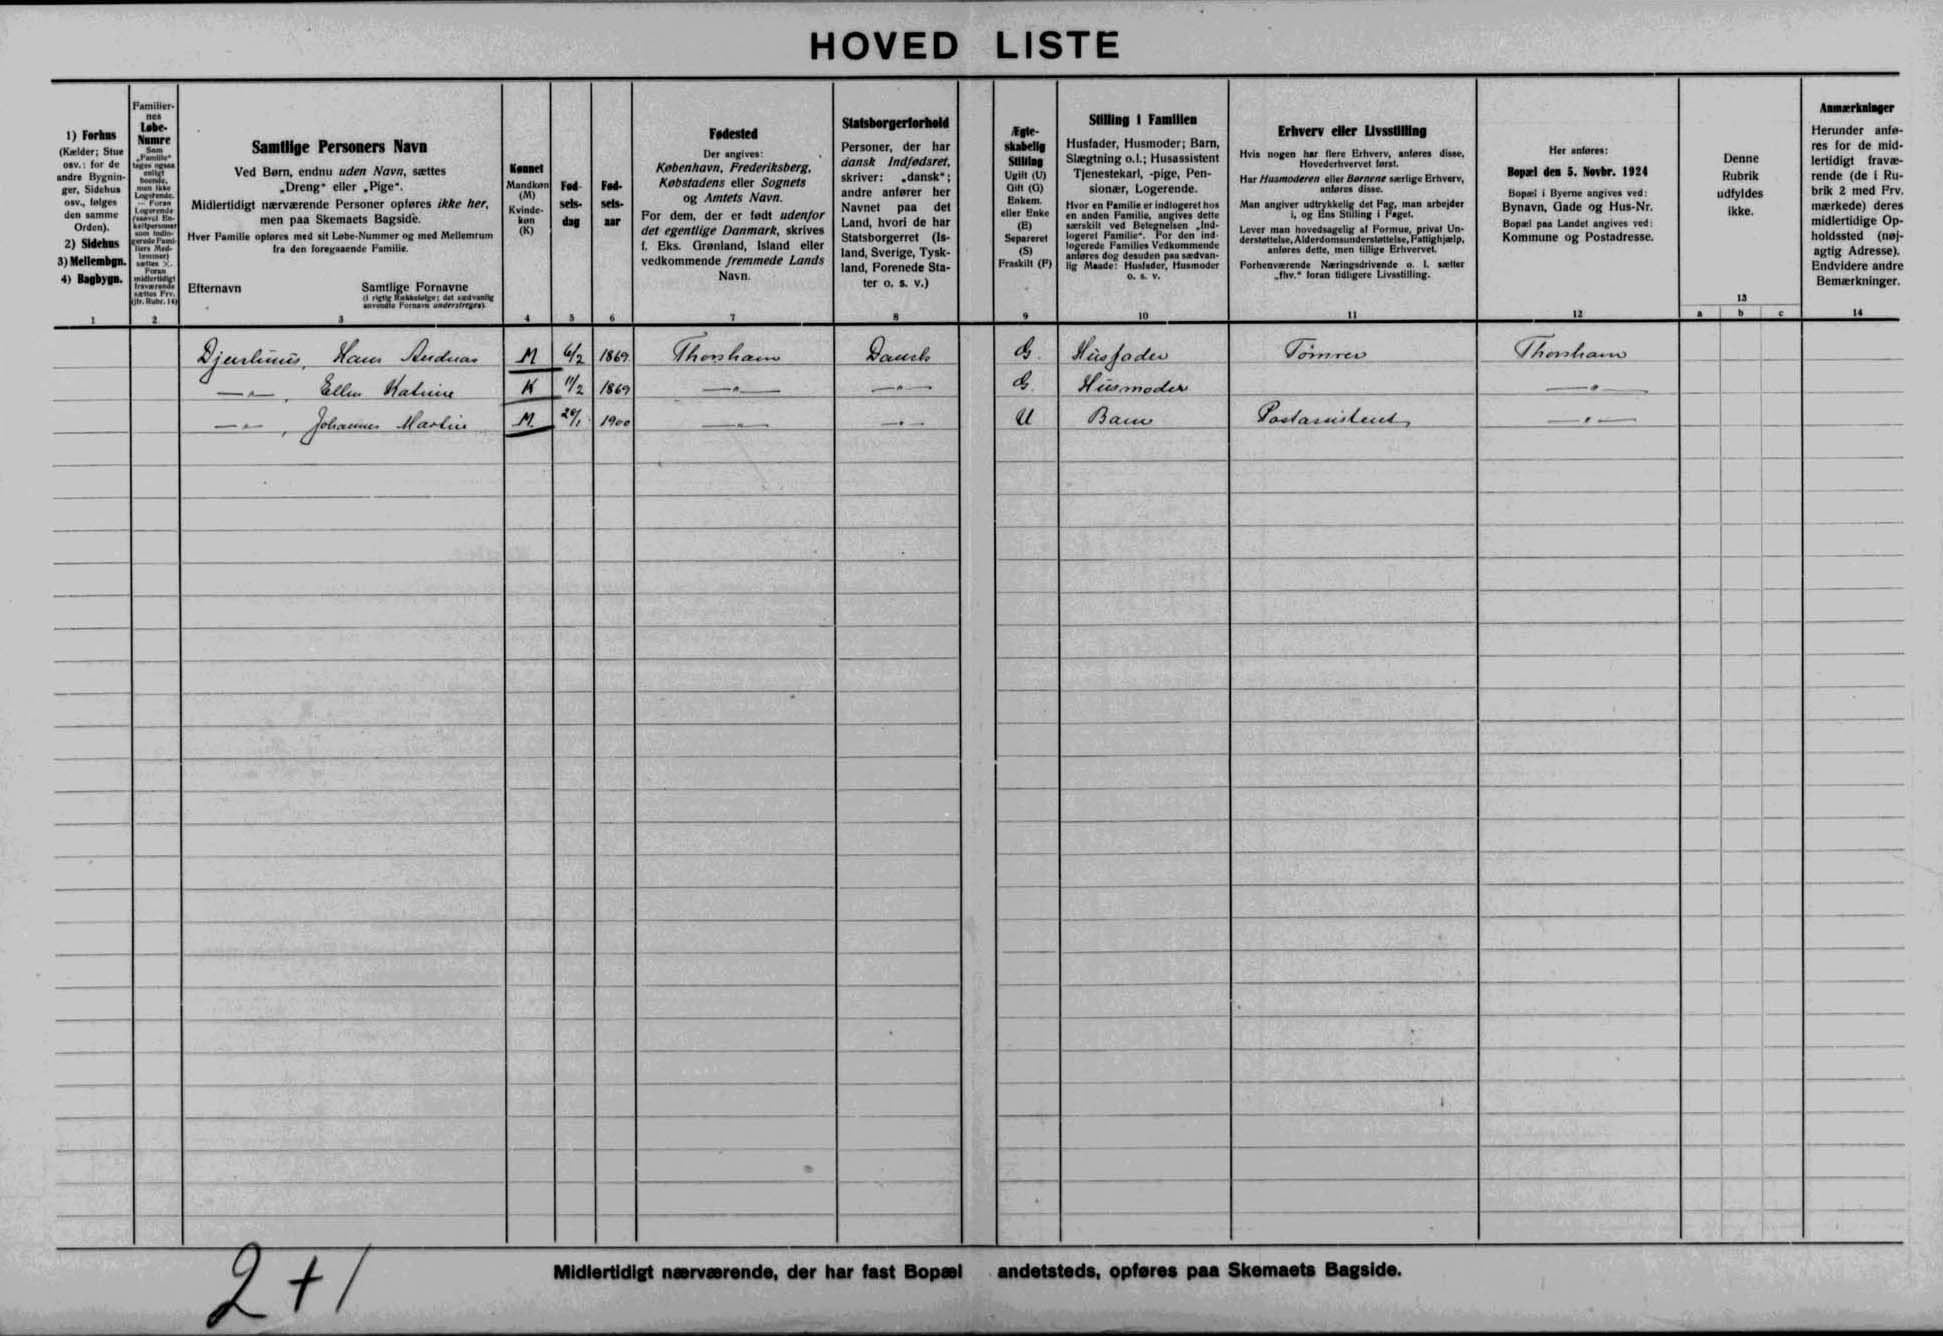 HOVED LISTE
1) Forhus
(Kælder; Stue
osv.: for de
andre Bygnin-
ger, Sidehus
osv., følges
den samme
Orden).
2) Sidehus
3) Mellembgn.
4) Bagbygn.
1
Familier-
nes
Løbe-
Numre
Som
„Familie"
tages ogsaa
enligt
boende,
men ikke
Logerende.
— Foran
Logerende
(saavel En-
keltpersoner
som indlo-
gerede Fami-
liers Med-
lemmer)
sættes ×.
Foran
midlertidigt
fraværende
sættes Frv.
(jfr. Rubr. 14)
2
Samtlige Personers Navn
Ved Børn, endnu uden Navn, sættes
„Dreng" eller „Pige".
Midlertidigt nærværende Personer opføres ikke her,
men paa Skemaets Bagside.
Hver Familie opføres med sit Løbe-Nummer og med Mellemrum
fra den foregaaende Familie.
Efternavn
Samtlige Fornavne
(i rigtig Rækkefølge; det sædvanlig
anvendte Fornavn understreges).
3
Kønnet
Mandkøn
(M)
Kvinde-
køn
(K)
4
Fød-
sels-
dag
5
Fød-
sels-
aar
6
Fødested
Der angives:
København, Frederiksberg,
Købstadens eller Sognets
og Amtets Navn.
For dem, der er født udenfor
det egentlige Danmark, skrives
f. Eks. Grønland, Island eller
vedkommende fremmede Lands
Navn.
7
Statsborgerforhold
Personer, der har
dansk Indfødsret,
skriver: „dansk";
andre anfører her
Navnet paa det
Land, hvori de har
Statsborgerret (Is-
land, Sverige, Tysk-
land, Forenede Sta-
ter o. s. v.)
8
Ægte-
skabelig
Stilling
Ugift (U)
Gift (G)
Enkem.
eller Enke
(E)
Separeret
(S)
Fraskilt (F)
9
Stilling i Familien
Husfader, Husmoder; Barn,
Slægtning o.l.; Husassistent
Tjenestekarl, -pige, Pen-
sionær, Logerende.
Hvor en Familie er indlogeret hos
en anden Familie, angives dette
særskilt ved Betegnelsen „Ind-
logeret Familie". For den ind-
logerede Families Vedkommende
anføres dog desuden paa sædvan-
lig Maade: Husfader, Husmoder
o. s. v.
10
Erhverv eller Livsstilling
Hvis nogen har flere Erhverv, anføres disse,
Hovederhvervet først.
Har Husmoderen eller Børnene særlige Erhverv,
anføres disse.
Man angiver udtrykkelig det Fag, man arbejder
i, og Ens Stilling i Faget.
Lever man hovedsagelig af Formue, privat Un-
derstøttelse, Alderdomsunderstøttelse, Fattighjælp,
anføres dette, men tillige Erhvervet.
Forhenværende Næringsdrivende o. l. sætter
„fhv." foran tidligere Livsstilling.
11
Her anføres:
Bopæl den 5. Novbr. 1924
Bopæl i Byerne angives ved:
Bynavn, Gade og Hus-Nr.
Bopæl paa Landet angives ved:
Kommune og Postadresse.
12
Denne
Rubrik
udfyldes
ikke.
13
a b c
Anmærkninger
Herunder anfø-
res for de mid-
lertidigt fravæ-
rende (de i Ru-
brik 2 med Frv.
mærkede) deres
midlertidige Op-
holdssted (nøj-
agtig Adresse).
Endvidere andre
Bemærkninger.
14
Djurhuus, Hans Andreas M 6/2 1869. Thorshavn Dansk G. Husfader Tømrer Thorshavn
—"—, Ellen Katrine K 11/2 1869 —"— —"— G. Husmoder —"—
—"—, Johannes Martin M. 20/1 1900 —"— —"— U Barn Postassistent —"—
2+1
Midlertidigt nærværende, der har fast Bopæl andetsteds, opføres paa Skemaets Bagside.